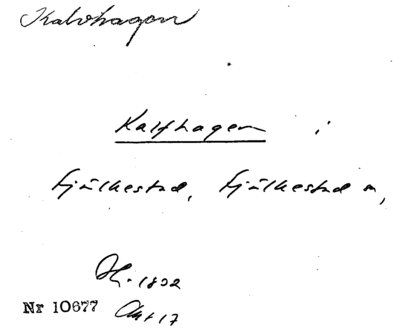 Kalvhagen
Kalfhagen i
Fjälkestad, Fjälkestad s,
1802
Nr 10677 Akt 17